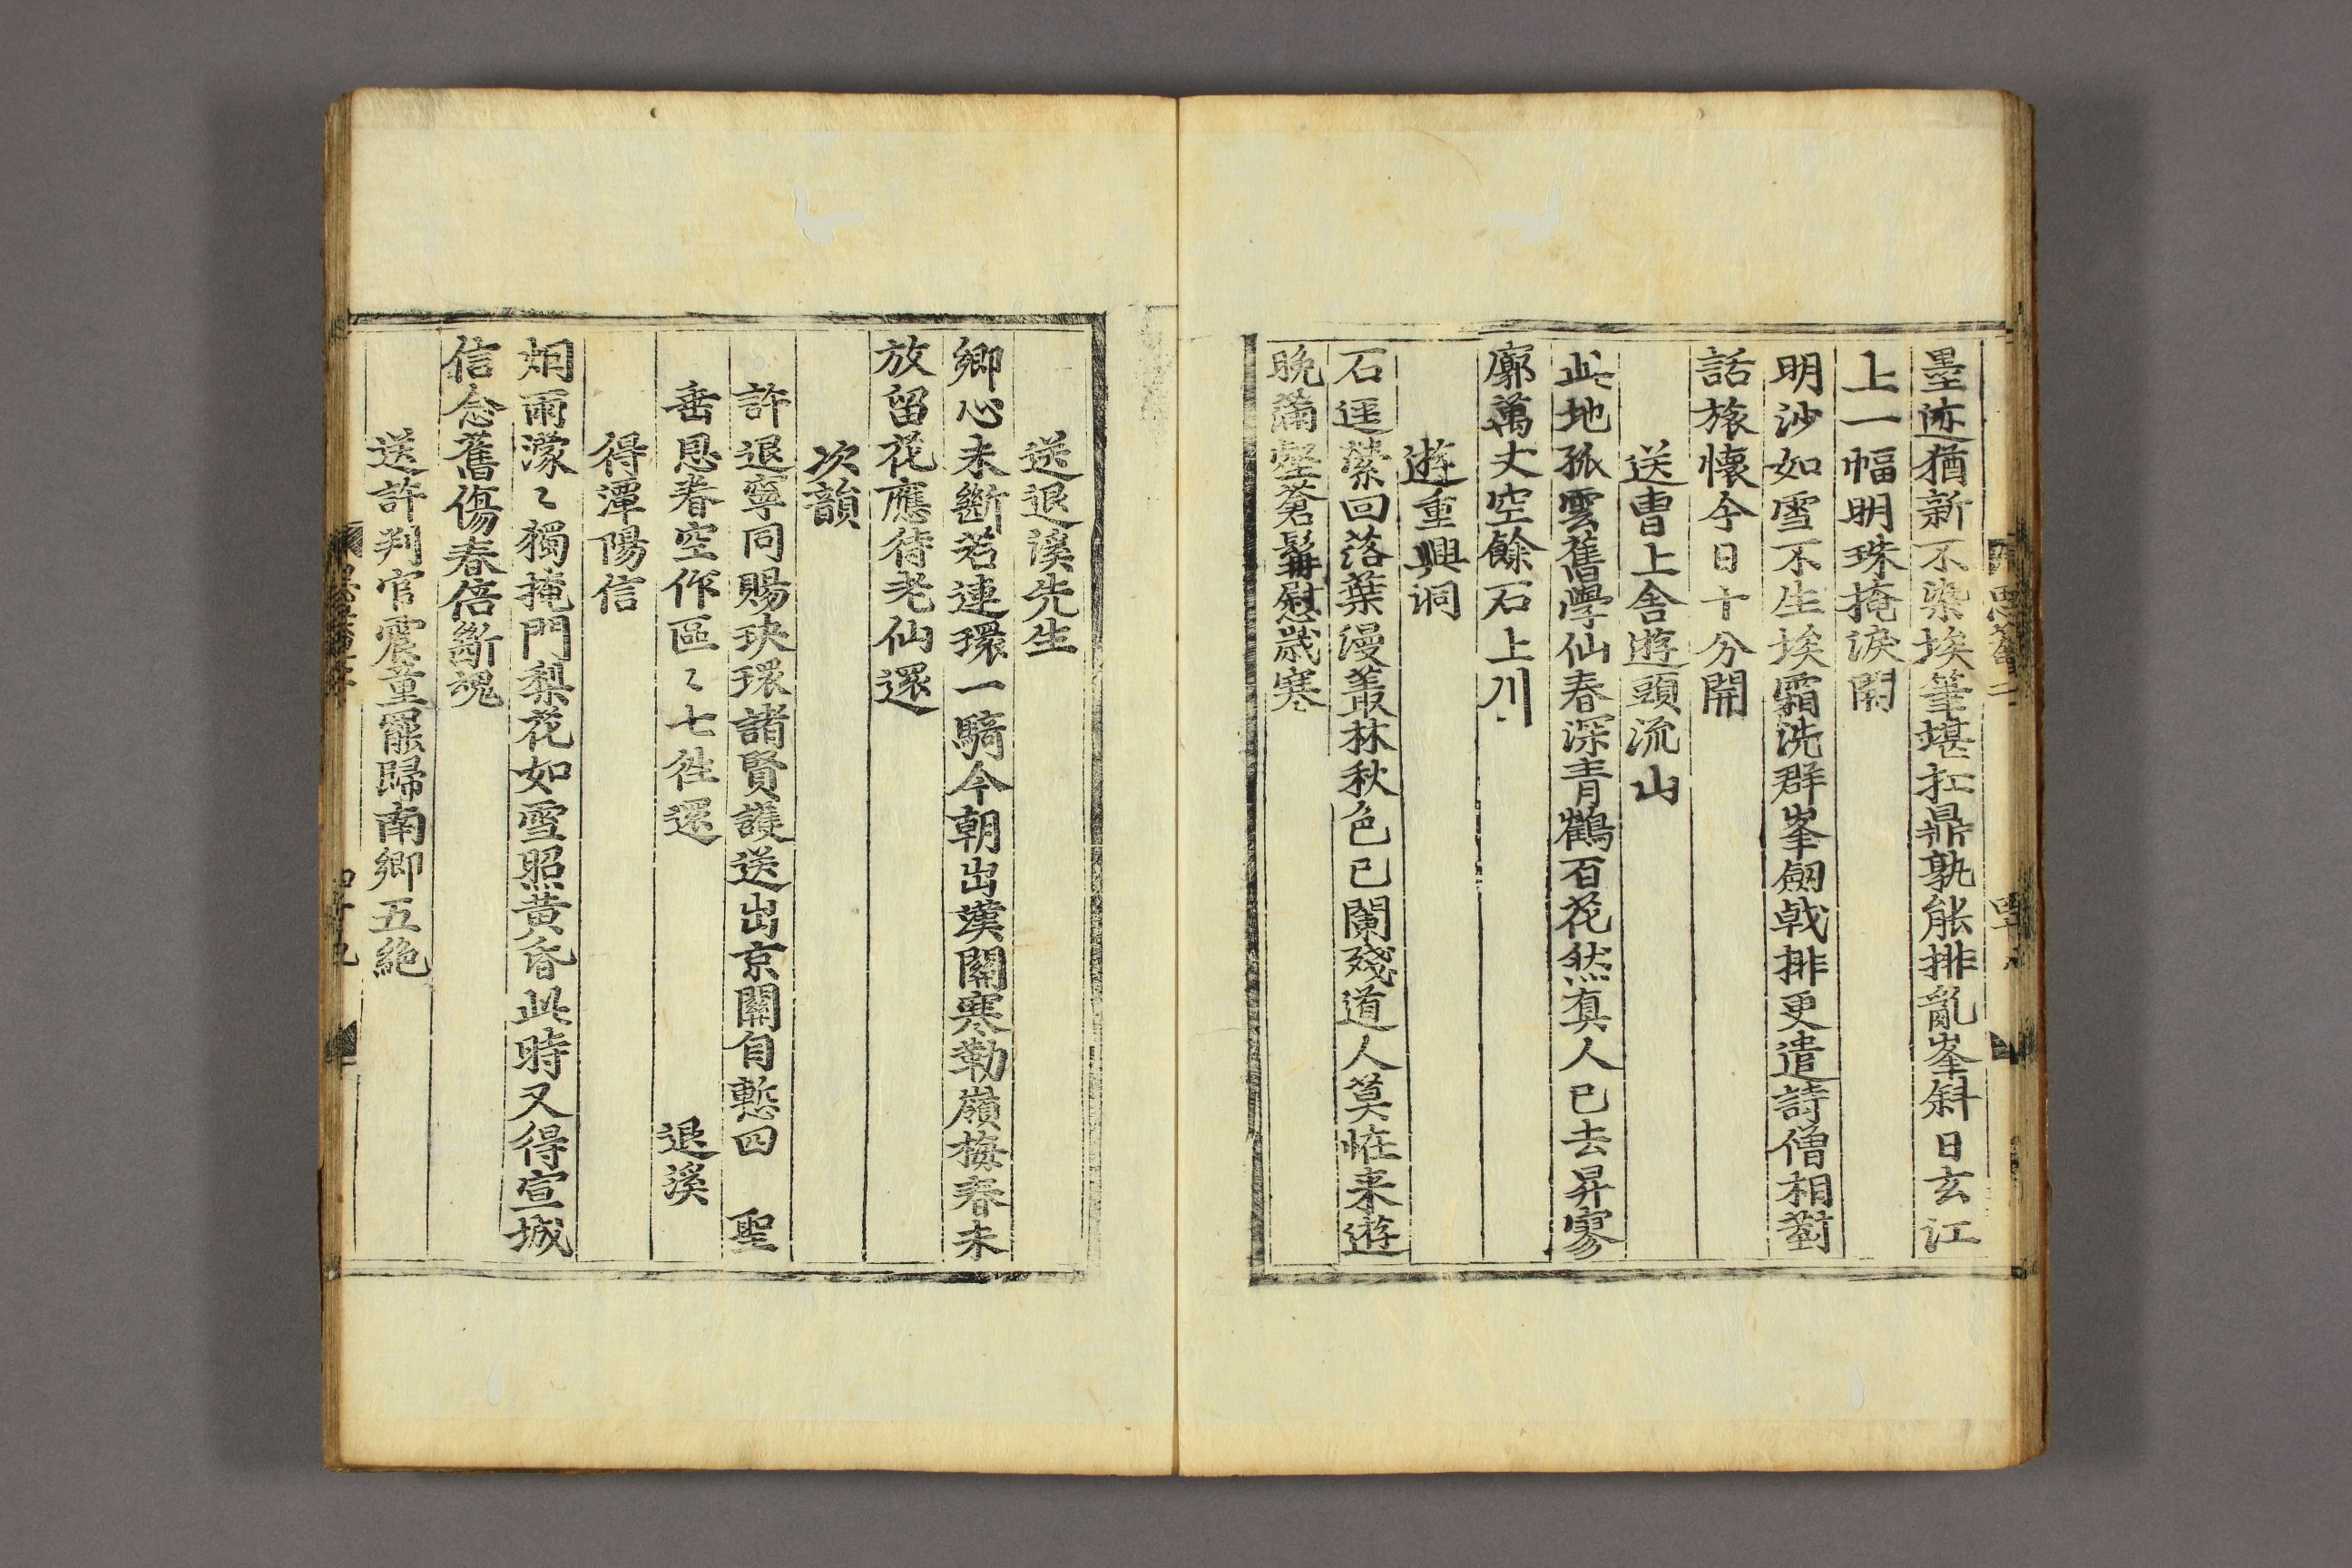 墨迹猶新不染埃筆堪扛鼎孰能排亂峯斜日玄江
上一幅明珠掩淚開
明沙如雪不生埃霜洗群峯劒戟排更遣詩僧相對
話旅懷今日十分開
送曺上舍遊頭流山
此地孤雲舊學仙春深青鶴百花然眞人已去昇寥
廓萬丈空餘石上川
遊重興洞
石逕縈回落葉漫叢林秋色已闌殘道人莫恠来遊
晩滿壑蒼髥慰歲寒
送退溪先生
鄉心未斷若連環一騎今朝出漢關寒勒嶺梅春未
放留花應待老仙還
次韻
許退寧同賜玦環諸賢護送出京關自慙四 聖
垂恩眷空作區〻七徃還 退溪
得潭陽信
烟雨濛〻獨掩門梨花如雪照黃昏此時又得宣城
信念舊傷春倍斷魂
送許判官震童罷歸南鄉五絶